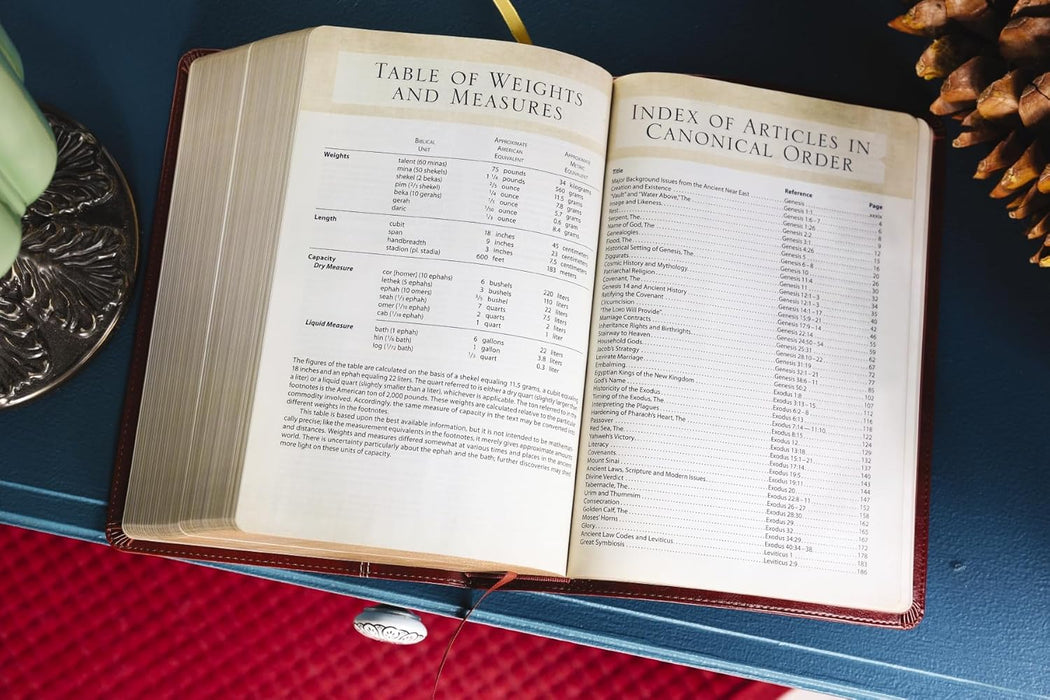 TABLE OF WEIGHTS
AND MEASURES
BIBLICAL UNIT APPROXIMATE AMERICAN EQUIVALENT APPROXIMATE METRIC EQUIVALENT
Weights talent (60 minas) 75 pounds 34 kilograms
mina (50 shekels) 1 1/4 pounds 560 grams
shekel (2 bekas) 2/5 ounce 11.5 grams
pim (2/3 shekel) 1/4 ounce 7.8 grams
beka (10 gerahs) 1/5 ounce 5.7 grams
gerah 1/50 ounce 0.6 gram
daric 1/3 ounce 8.4 grams
Length cubit 18 inches 45 centimeters
span 9 inches 23 centimeters
handbreadth 3 inches 7.5 centimeters
stadion (pl. stadia) 600 feet 183 meters
Capacity
Dry Measure cor [homer] (10 ephahs) 6 bushels 220 liters
lethek (5 ephahs) 3 bushels 110 liters
ephah (10 omers) 3/5 bushel 22 liters
seah (1/3 ephah) 7 quarts 7.5 liters
omer (1/10 ephah) 2 quarts 2 liters
cab (1/18 ephah) 1 quart 1 liter
Liquid Measure bath (1 ephah) 6 gallons 22 liters
hin (1/6 bath) 1 gallon 3.8 liters
log (1/72 bath) 1/3 quart 0.3 liter
The figures of the table are calculated on the basis of a shekel equaling 11.5 grams, a cubit equaling
18 inches and an ephah equaling 22 liters. The quart referred to is either a dry quart (slightly larger than
a liter) or a liquid quart (slightly smaller than a liter), whichever is applicable. The ton referred to in the
footnotes is the American ton of 2,000 pounds. These weights are calculated relative to the particular
commodity involved. Accordingly, the same measure of capacity in the text may be converted into
different weights in the footnotes.
This table is based upon the best available information, but it is not intended to be mathemati-
cally precise; like the measurement equivalents in the footnotes, it merely gives approximate amounts
and distances. Weights and measures differed somewhat at various times and places in the ancient
world. There is uncertainty particularly about the ephah and the bath; further discoveries may shed
more light on these units of capacity.
INDEX OF ARTICLES IN
CANONICAL ORDER
Title Reference Page
Major Background Issues from the Ancient Near East Genesis
Creation and Existence Genesis 1:1
"Vault" and "Water Above," The Genesis 1:6–7
Image and Likeness Genesis 1:26
Rest Genesis 2:2
Serpent, The Genesis 3:1
Name of God, The Genesis 4:26
Genealogies Genesis 5
Flood, The Genesis 6–8
Historical Setting of Genesis, The Genesis 10
Ziggurats Genesis 11:4
Cosmic History and Mythology Genesis 11
Patriarchal Religion Genesis 12:1–3
Covenant, The Genesis 12:1–3
Genesis 14 and Ancient History Genesis 14:1–17
Ratifying the Covenant Genesis 15:9–21
Circumcision Genesis 17:9–14
"The LORD Will Provide" Genesis 22:14
Marriage Contracts Genesis 24:50–54
Inheritance Rights and Birthrights Genesis 25:31
Stairway to Heaven Genesis 28:10–22
Household Gods Genesis 31:19
Jacob's Strategy Genesis 32:1–21
Levirate Marriage Genesis 38:6–11
Embalming Genesis 50:2
Egyptian Kings of the New Kingdom Exodus 1:8
God's Name Exodus 3:13–15
Historicity of the Exodus Exodus 6:2–8
Timing of the Exodus, The Exodus 6:13
Interpreting the Plagues Exodus 7:14–11:10
Hardening of Pharaoh's Heart, The Exodus 8:15
Passover Exodus 12
Red Sea, The Exodus 13:18
Yahweh's Victory Exodus 15:1–21
Literacy Exodus 17:14
Covenants Exodus 19:5
Mount Sinai Exodus 19:11
Ancient Laws, Scripture and Modern Issues Exodus 20
Divine Verdict Exodus 22:8–11
Tabernacle, The Exodus 26–27
Urim and Thummim Exodus 28:30
Consecration Exodus 29
Golden Calf, The Exodus 32
Moses' Horns Exodus 34:29
Glory Exodus 40:34–38
Ancient Law Codes and Leviticus Leviticus 1 183
Great Symbiosis Leviticus 2:9 186